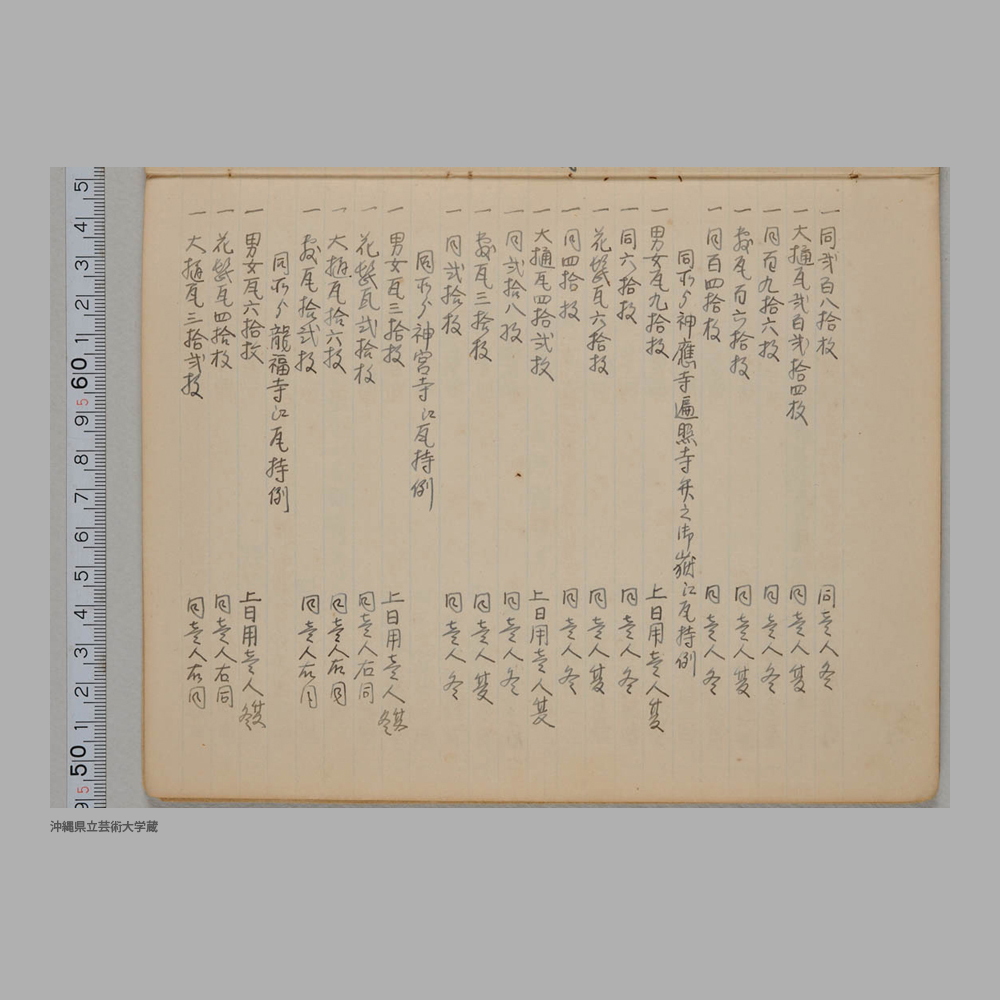 一 同弐百八拾枚 同壱人冬
一 大桶瓦弐百弐拾四枚 同壱人夏
一 同百九拾六枚 同壱人冬
一 敷瓦百六拾枚 同壱人夏
一 同百四拾枚 同壱人冬
同所ゟ神應寺遍照寺弁之御嶽江瓦持例
一 男女瓦九拾枚 上日用壱人夏
一 同六拾枚 同壱人冬
一 花髪瓦六拾枚 同壱人夏
一 同四拾枚 同壱人冬
一 大桶瓦四拾弐枚 上日用壱人夏
一 同弐拾八枚 同壱人冬
一 敷瓦三拾枚 同壱人夏
一 同弐拾枚 同壱人冬
同所ゟ神宮寺江瓦持例
一 男女瓦三拾枚 上日用壱人冬
一 花髪瓦弐拾枚 同壱人右同
一 大桶瓦拾六枚 同壱人右同
一 敷瓦拾弐枚 同壱人右同
同所ゟ龍福寺江瓦持例
一 男女瓦六拾枚 上日用壱人冬
一 花髪瓦四拾枚 同壱人右同
一 大桶瓦三拾弐枚 同壱人右同
5
4
3
2
1
60
5
9
8
7
6
5
4
3
2
1
50
5
9
沖縄県立芸術大学蔵